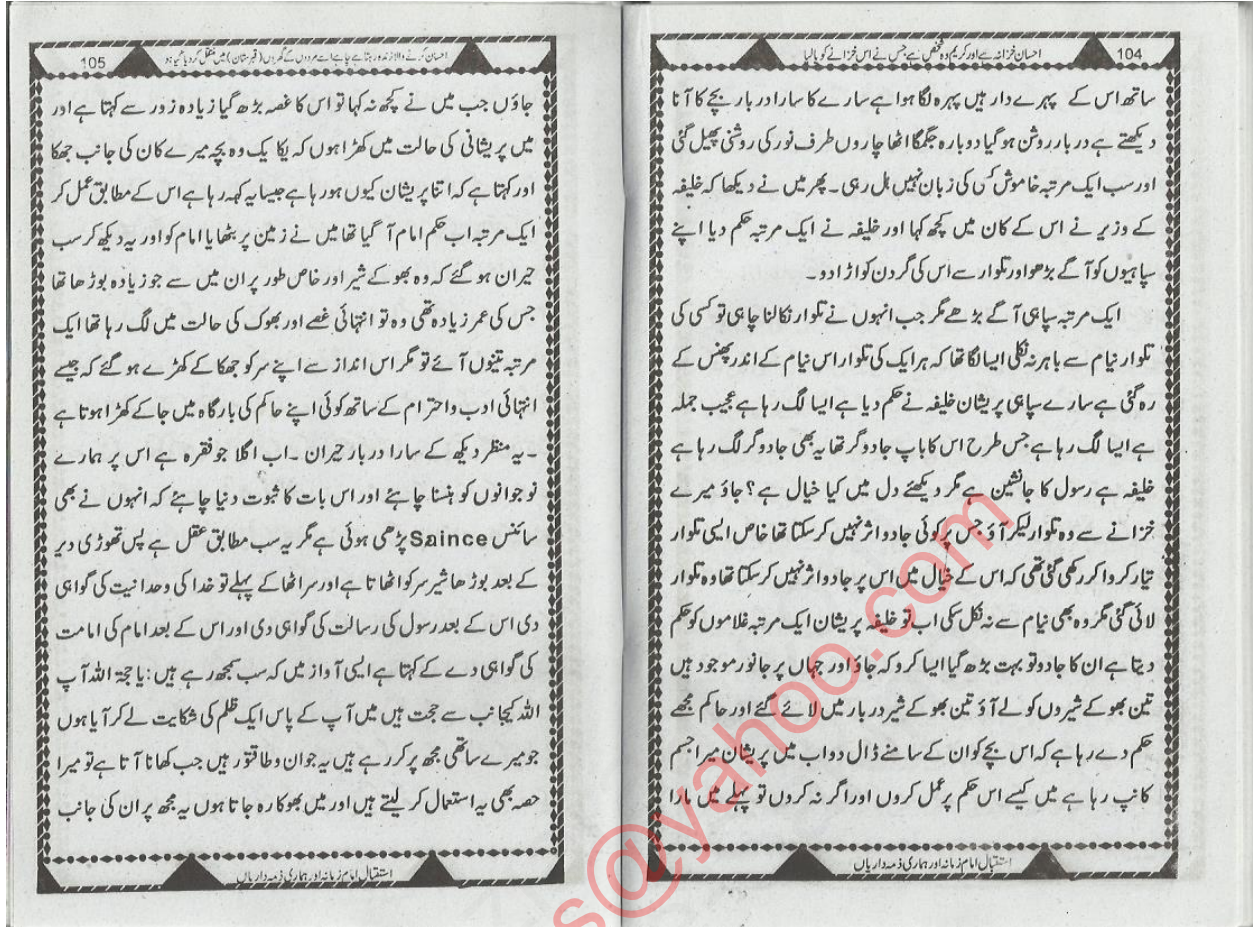 احسان خزانہ ہے اور کریم وہ شخص ہے جس نے اس خزانے کو پالیا
104
ساتھ اس کے پہرے دار ہیں پہرہ لگا ہوا ہے سارے کا سارا دربار بچے کا آنا
دیکھتے ہے دربار روشن ہو گیا دوبارہ جگمگا اٹھا چاروں طرف نور کی روشنی پھیل گئی
اور سب ایک مرتبہ خاموش کسی کی زبان نہیں ہل رہی ۔ پھر میں نے دیکھا کہ خلیفہ
کے وزیر نے اس کے کان میں کچھ کہا اور خلیفہ نے ایک مرتبہ حکم دیا اپنے
سپاہیوں کو آگے بڑھو اور تلوار سے اس کی گردن کو اڑا دو ۔
ایک مرتبہ سپاہی آگے بڑھے مگر جب انہوں نے تلوار نکالنا چاہی تو کسی کی
تلوار نیام سے باہر نہ نکلی ایسا لگا تھا کہ ہر ایک کی تلوار اس نیام کے اندر پھنس کے
رہ گئی ہے سارے سپاہی پریشان خلیفہ نے حکم دیا ہے ایسا لگ رہا ہے عجیب جملہ
ہے ایسا لگ رہا ہے جس طرح اس کا باپ جادوگر تھا یہ بھی جادوگر لگ رہا ہے
خلیفہ ہے رسول کا جانشین ہے مگر دیکھئے دل میں کیا خیال ہے؟ جاؤ میرے
خزانے سے وہ تلوار لیکر آؤ جس پر کوئی جادو اثر نہیں کر سکتا تھا خاص ایسی تلوار
تیار کروا کر رکھی گئی تھی کہ اس کے خیال میں اس پر جادو اثر نہیں کر سکتا تھا وہ تلوار
لائی گئی مگر وہ بھی نیام سے نہ نکل سکی اب تو خلیفہ پریشان ایک مرتبہ غلاموں کو حکم
دیتا ہے ان کا جادو تو بہت بڑھ گیا ایسا کرو کہ جاؤ اور جہاں پر جانور موجود ہیں
تین بھوکے شیروں کو لے آؤ تین بھوکے شیر دربار میں لائے گئے اور حاکم مجھے
حکم دے رہا ہے کہ اس بچے کو ان کے سامنے ڈال دو اب میں پریشان میرا جسم
کانپ رہا ہے میں کیسے اس حکم پر عمل کروں اور اگر نہ کروں تو پہلے میں مارا
استقبال امام زمانہ اور ہماری ذمہ داریاں
احسان کرنے والا زندہ رہتا ہے چاہے اسے مردوں کے گھروں (قبرستان) میں منتقل کر دیا گیا ہو
105
جاؤں جب میں نے کچھ نہ کہا تو اس کا غصہ بڑھ گیا زیادہ زور سے کہتا ہے اور
میں پریشانی کی حالت میں کھڑا ہوں کہ یکایک وہ بچہ میرے کان کی جانب جھکا
اور کہتا ہے کہ اتنا پریشان کیوں ہو رہا ہے جیسا یہ کہہ رہا ہے اس کے مطابق عمل کر
ایک مرتبہ اب حکم امام آ گیا تھا میں نے زمین پر بٹھایا امام کو اور یہ دیکھ کر سب
حیران ہو گئے کہ وہ بھوکے شیر اور خاص طور پر ان میں سے جو زیادہ بوڑھا تھا
جس کی عمر زیادہ تھی وہ تو انتہائی غصے اور بھوک کی حالت میں لگ رہا تھا ایک
مرتبہ تینوں آئے تو مگر اس انداز سے اپنے سر کو جھکا کے کھڑے ہو گئے کہ جیسے
انتہائی ادب و احترام کے ساتھ کوئی اپنے حاکم کی بارگاہ میں جا کے کھڑا ہوتا ہے
۔ یہ منظر دیکھ کے سارا دربار حیران ۔ اب اگلا جو فقرہ ہے اس پر ہمارے
نوجوانوں کو ہنسنا چاہئے اور اس بات کا ثبوت دنیا چاہئے کہ انہوں نے بھی
سائنس Saince پڑھی ہوئی ہے مگر یہ سب مطابق عقل ہے پس تھوڑی دیر
کے بعد بوڑھا شیر سر کو اٹھاتا ہے اور سر اٹھا کے پہلے تو خدا کی وحدانیت کی گواہی
دی اس کے بعد رسول کی رسالت کی گواہی دی اور اس کے بعد امام کی امامت
کی گواہی دے کے کہتا ہے ایسی آواز میں کہ سب سمجھ رہے ہیں : یا حجۃ اللہ آپ
اللہ کیجانب سے حجت ہیں میں آپ کے پاس ایک ظلم کی شکایت لے کر آیا ہوں
جو میرے ساتھی مجھ پر کر رہے ہیں یہ جوان و طاقتور ہیں جب کھانا آتا ہے تو میرا
حصہ بھی یہ استعمال کر لیتے ہیں اور میں بھوکا رہ جاتا ہوں یہ مجھ پر ان کی جانب
استقبال امام زمانہ اور ہماری ذمہ داریاں
s@yahoo.com